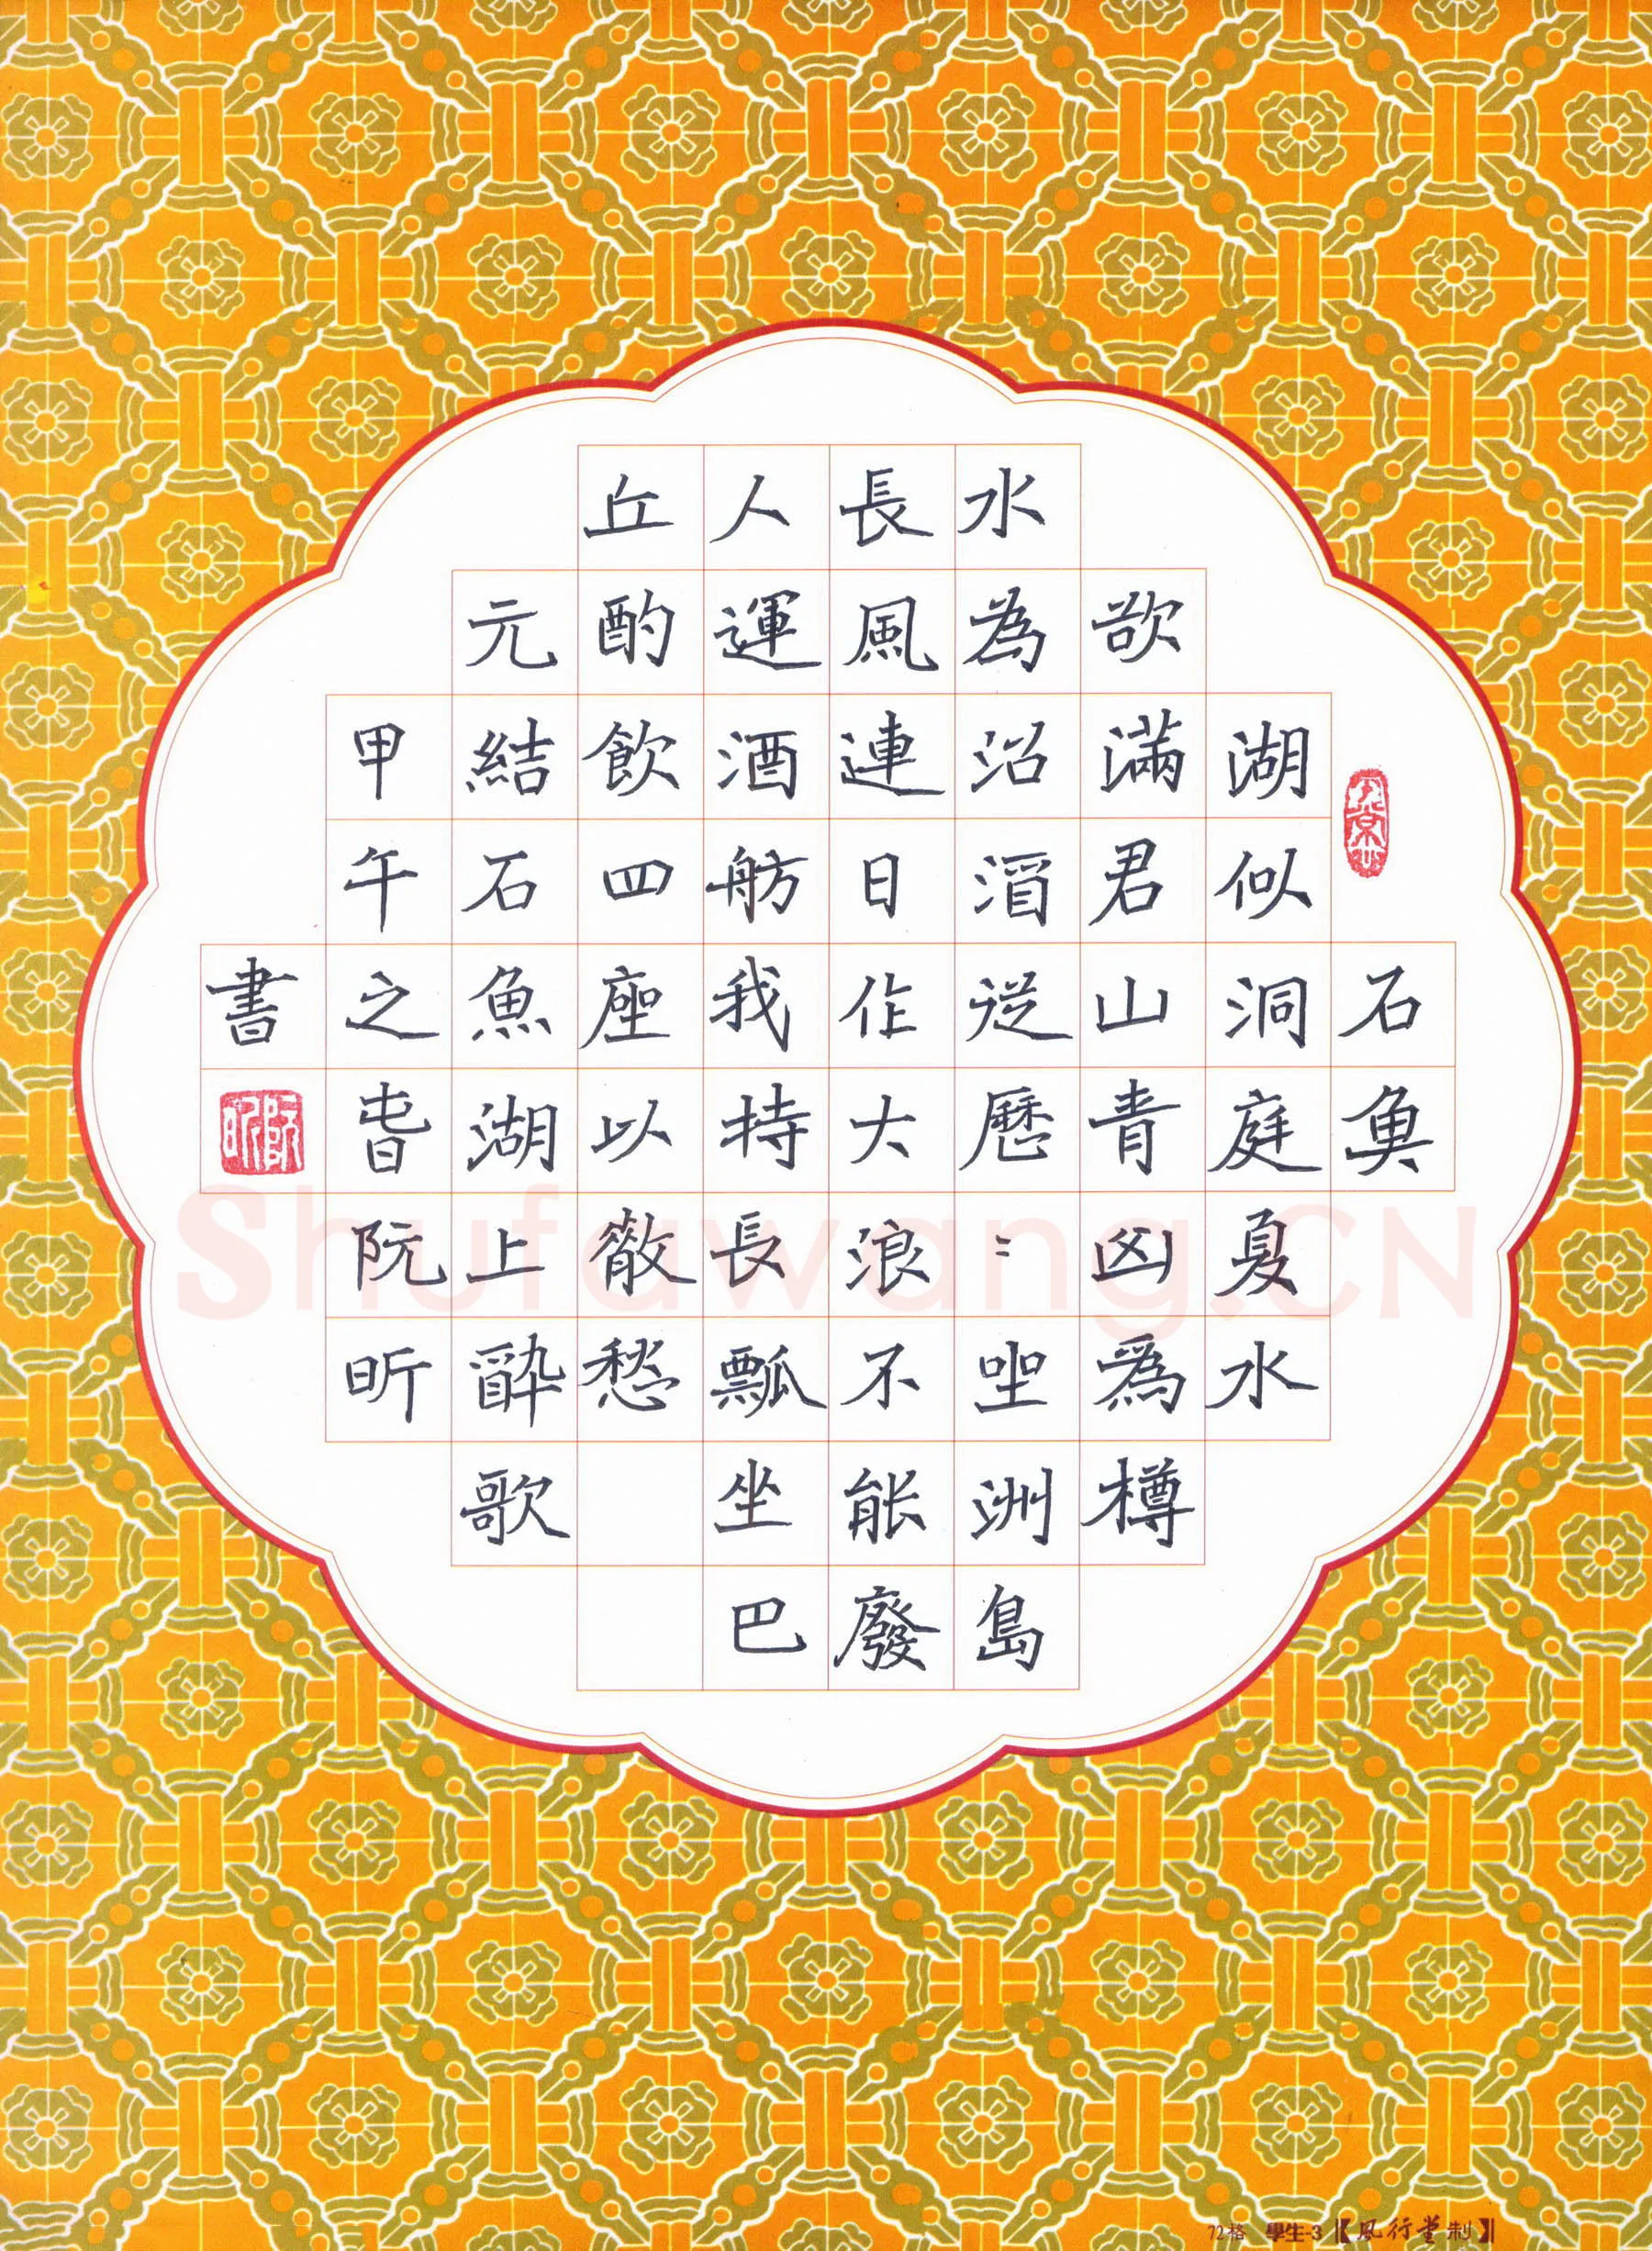 石魚
湖似洞庭夏水
欲滿君山青凶爲樽
水為沼酒徒歷〻坐洲島
長風連日作大浪不能廢
人運酒舫我持長瓢坐巴
丘酌飲四座以散愁
元結石魚湖上醉歌
甲午之春阮昕
書
阮昕
Shufawang.CN
72格 學生-3【風行堂制】